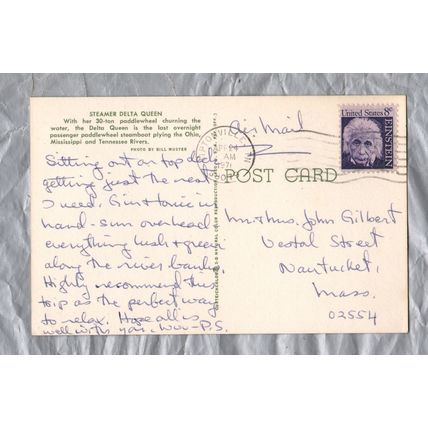 STEAMER DELTA QUEEN
With her 30-ton paddlewheel churning the
water, the Delta Queen is the last overnight
passenger paddlewheel steamboat plying the Ohio,
Mississippi and Tennessee Rivers.
PHOTO BY BILL MUSTER
Sitting out on top deck
getting just the rest
I need. Gin & tonic in
hand - sun overhead
everything lush & green
along the river banks.
Highly recommend this
trip as the perfect way
to relax. Hope all is
well with you. Love - P.S.
Air Mail
AM
POST CARD
United States 8c
EINSTEIN
Mr. & Mrs. John Gilbert
Vestal Street
Nantucket,
Mass.
02554